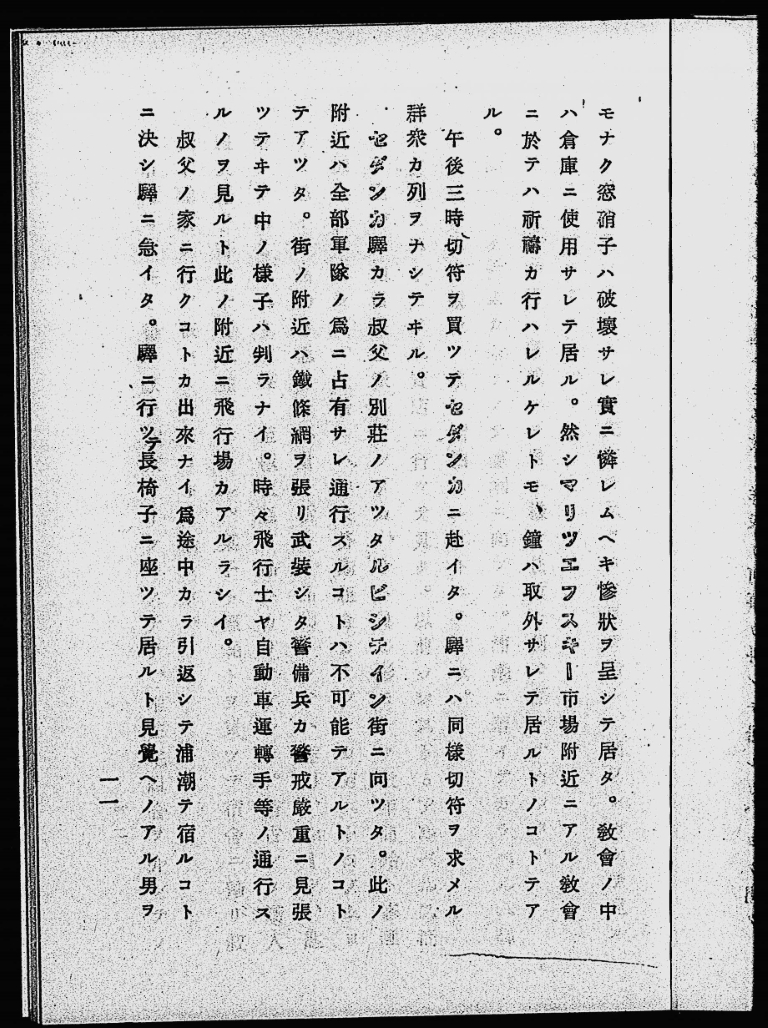 モナク窓硝子ハ破壞サレ實ニ憐レムヘキ慘狀ヲ呈シテ居タ。敎會ノ中
ハ倉庫ニ使用サレテ居ル。然シマリツエフスキー市場附近ニアル敎會
ニ於テハ祈禱カ行ハレルケレトモ、鐘ハ取外サレテ居ルトノコトテア
ル。
午後三時切符ヲ買ツテセダンカニ赴イタ。驛ニハ同樣切符ヲ求メル
群衆カ列ヲナシテヰル。
セダンカ驛カラ叔父ノ別莊ノアツタルビシテイン街ニ向ツタ。此ノ
附近ハ全部軍隊ノ爲ニ占有サレ通行スルコトハ不可能テアルトノコト
テアツタ。街ノ附近ハ鐵條網ヲ張リ武裝シタ警備兵カ警戒嚴重ニ見張
ツテヰテ中ノ樣子ハ判ラナイ。時々飛行士ヤ自動車運轉手等ノ通行ス
ルノヲ見ルト此ノ附近ニ飛行場カアルラシイ。
叔父ノ家ニ行クコトカ出來ナイ爲途中カラ引返シテ浦潮テ宿ルコト
ニ決シ驛ニ急イタ。驛ニ行ツテ長椅子ニ座ツテ居ルト見覺ヘノアル男ヲ
一一